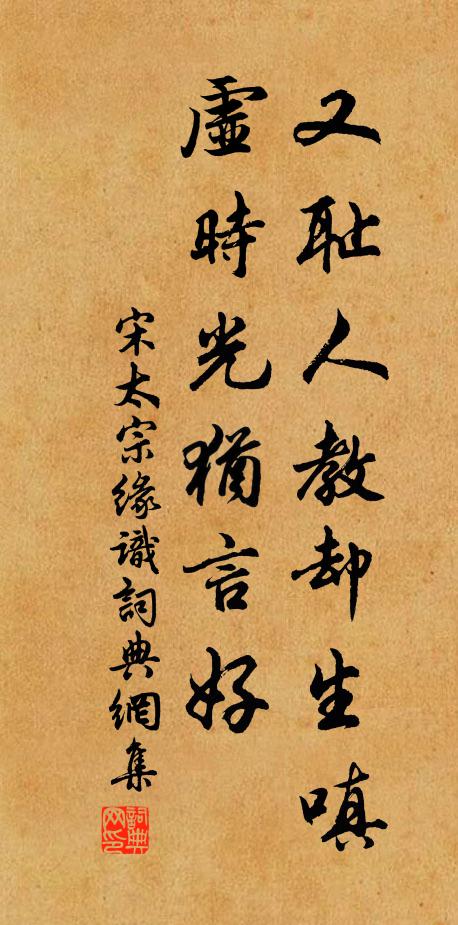 又耻人教却生嗔
虛時光猶言好
宋太宗緣識詞典網集
詞典网印